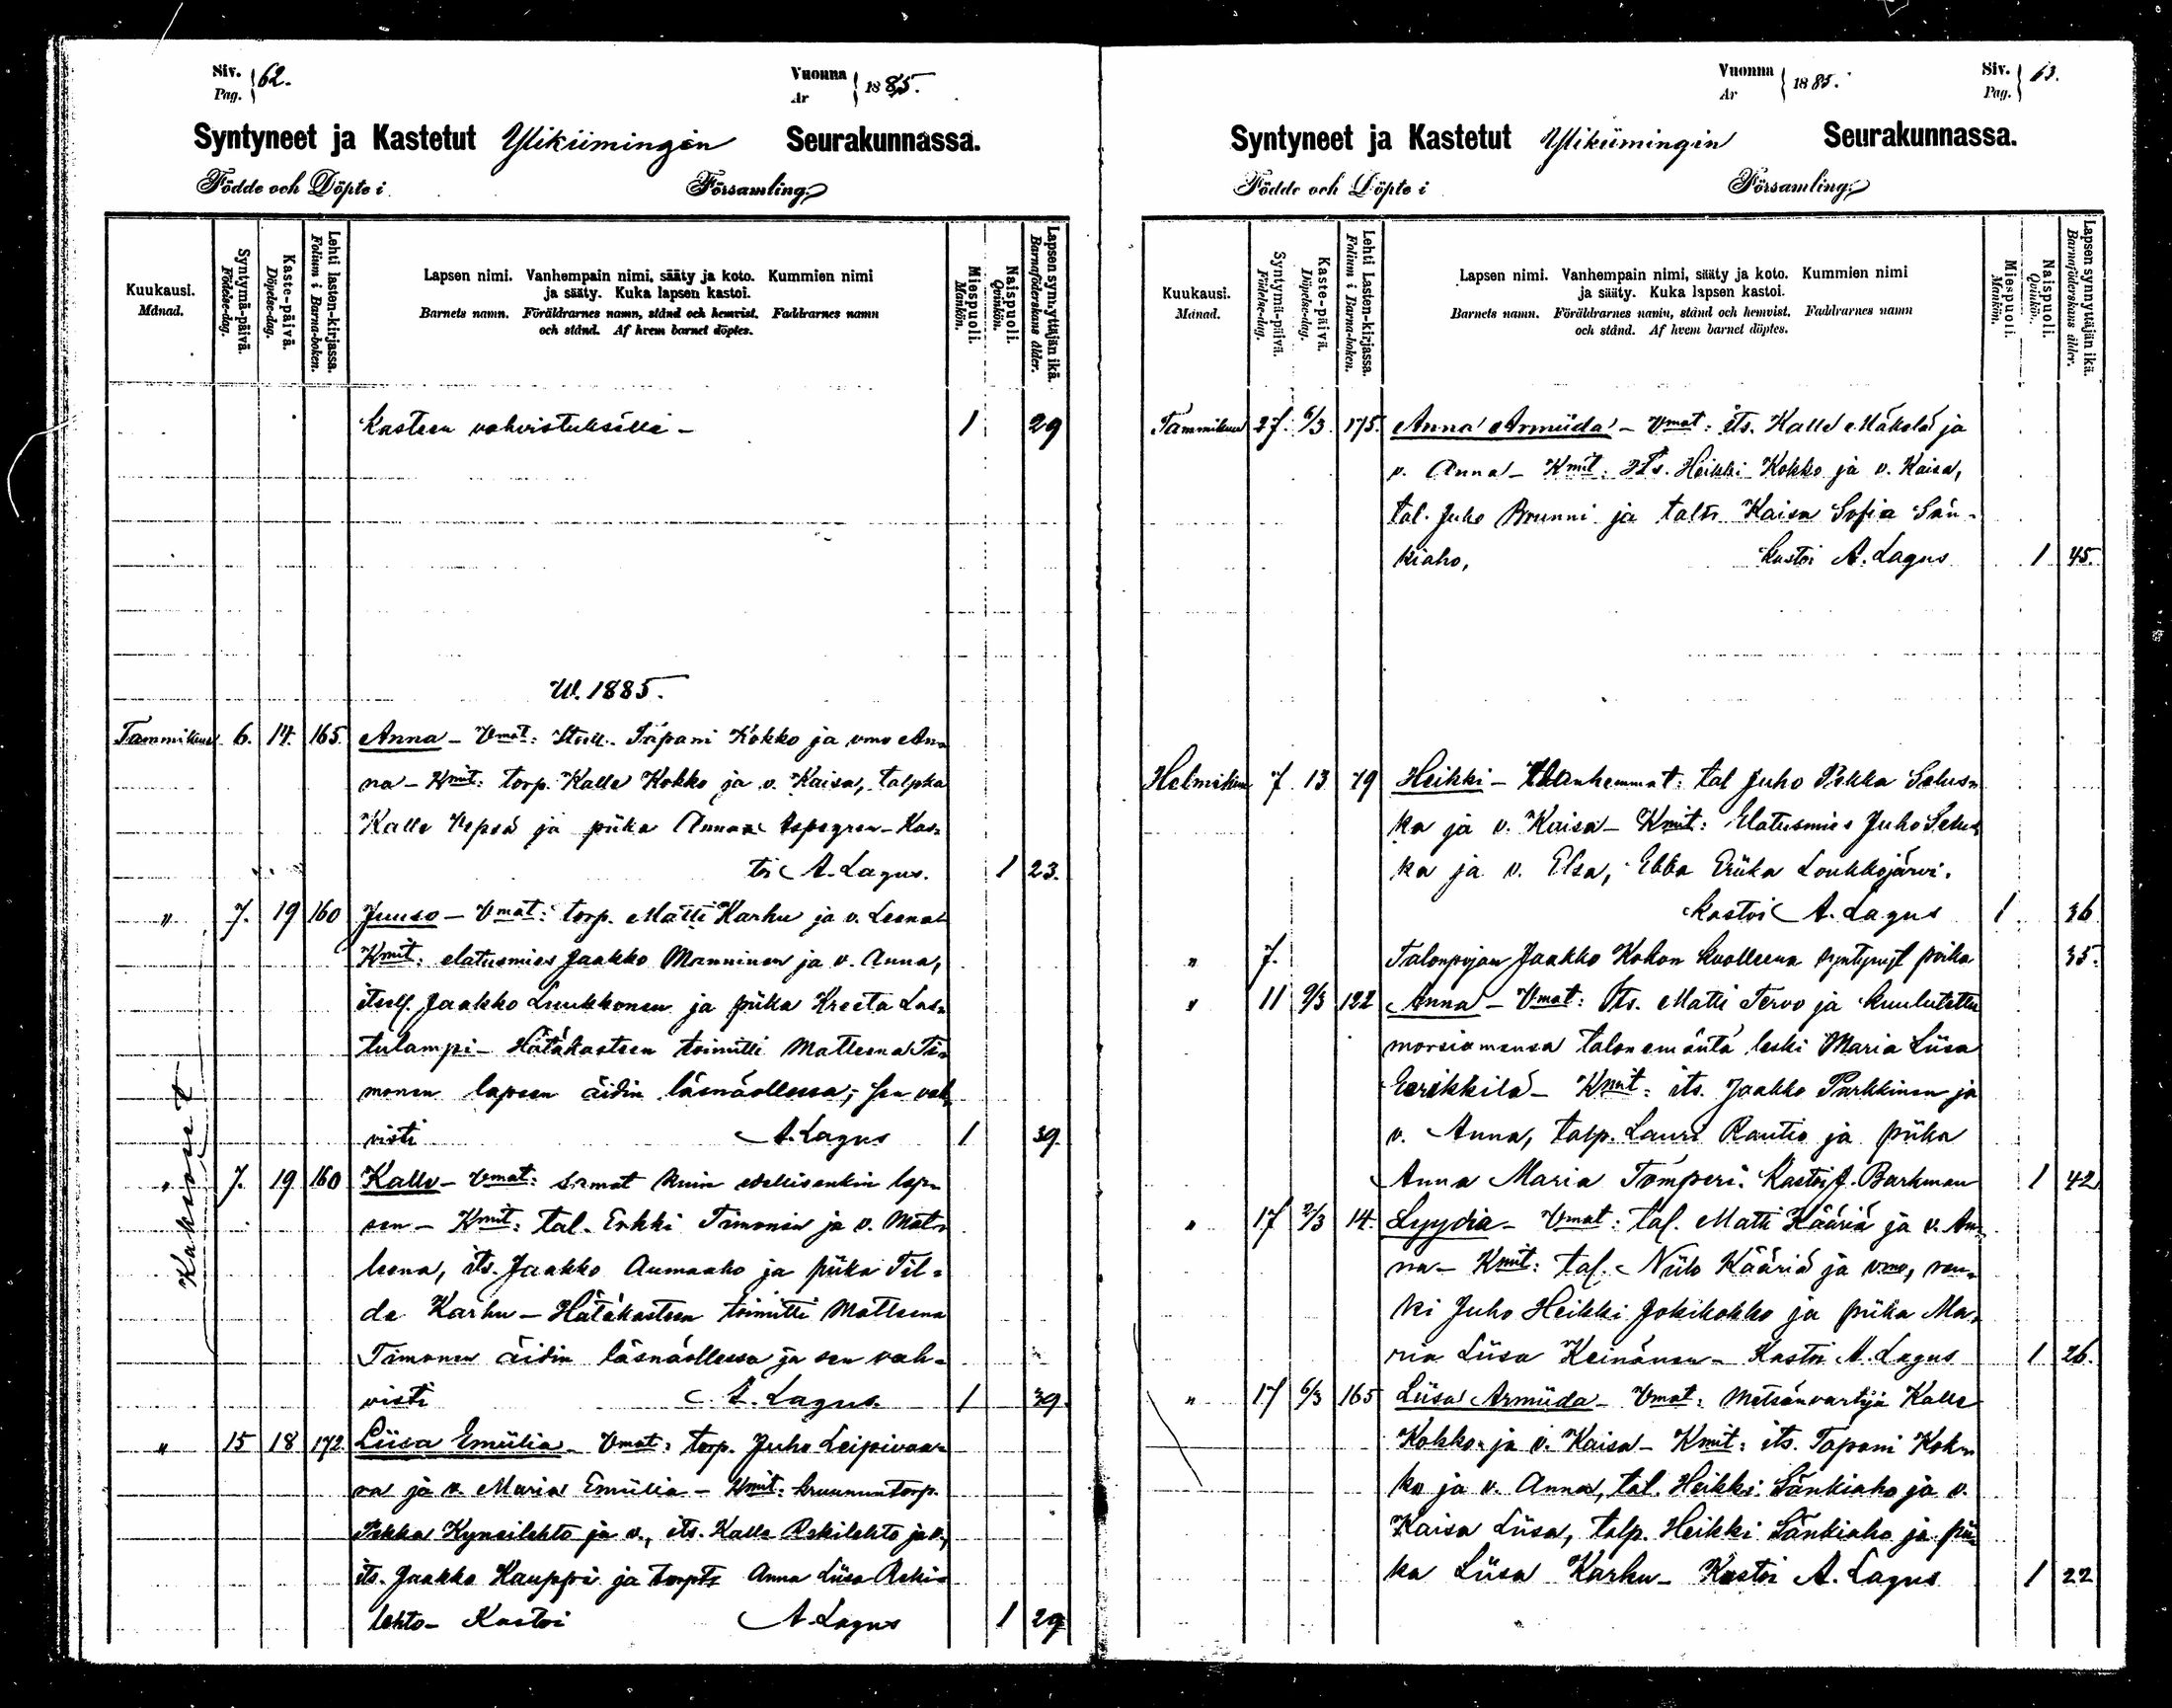 Siv. Pag. 62.
Vuonna År 1885.
Syntyneet ja Kastetut Ylikiimingin Seurakunnassa.
Födde och Döpte i Församling.
Kuukausi. Månad.
Syntymä-päivä. Födelse-dag.
Kaste-päivä. Döpelse-dag.
Lehti lasten-kirjassa. Folium i Barna-boken.
Lapsen nimi. Vanhempain nimi, sääty ja koto. Kummien nimi
ja sääty. Kuka lapsen kastoi.
Barnets namn. Föräldrarnes namn, stånd och hemvist. Faddrarnes namn
och stånd. Af hvem barnet döptes.
Miespuoli. Mankön.
Naispuoli. Qvinkön.
Lapsen synnyttäjän ikä. Barnaföderskans ålder.
Kasteen vahvistuksella - 1 29
W. 1885.
Tammikuu 6. 14. 165. Anna - Vmat: Tapani Kokko ja vmo An-
na - Kmit: torp. Kalle Kokko ja v. Kaisa, talpka
Kalle Kepsä ja piika Anna Aspegren - Kas-
toi A. Lagus. 1 23.
" 7. 19 160 Juuso - Vmat: torp. Matti Karhu ja v. Leena
Kmit: elatusmies Jaakko Manninen ja v. Anna,
itsell. Jaakko Luukkonen ja piika Kreeta Las-
tulampi - Hätäkasteen toimitti Matleena Ti-
monen lapsen äidin läsnäollessa; sen vah-
visti A. Lagus 1 39.
" 7. 19 160 Kalle - Vmat: samat kuin edellisenkin lap-
sen - Kmit: tal. Erkki Timonen ja v. Mat-
leena, its. Jaakko Aumaaho ja piika Til-
da Karhu - Hätäkasteen toimitti Matleena
Timonen äidin läsnäollessa ja sen vah-
visti A. Lagus. 1 39.
Kaksoset
" 15 18 172 Liisa Emiilia - Vmat: torp. Juho Leipivaa-
ra ja v. Maria Emiilia - Kmit: kruununtorp.
Pekka Kynsilehto ja v., its. Kalle Rekilehto ja v.,
its. Jaakko Kauppi ja torptr Anna Liisa Reki-
lehto - Kastoi A. Lagus 1 29
Vuonna År 1885.
Siv. Pag. 63.
Syntyneet ja Kastetut Ylikiimingin Seurakunnassa.
Födde och Döpte i Församling.
Kuukausi. Månad.
Syntymä-päivä. Födelse-dag.
Kaste-päivä. Döpelse-dag.
Lehti Lasten-kirjassa. Folium i Barna-boken.
Lapsen nimi. Vanhempain nimi, sääty ja koto. Kummien nimi
ja sääty. Kuka lapsen kastoi.
Barnets namn. Föräldrarnes namn, stånd och hemvist. Faddrarnes namn
och stånd. Af hvem barnet döptes.
Miespuoli. Mankön.
Naispuoli. Qvinkön.
Lapsen synnyttäjän ikä. Barnaföderskans ålder.
Tammikuu 27. 6/3. 175. Anna Armiida - Vmat: its. Kalle Mäkelä ja
v. Anna - Kmit: Its. Heikki Kokko ja v. Kaisa,
tal. Juho Brunni ja taltr Kaisa Sofia Sän-
kiaho, Kastoi A. Lagus 1 45.
Helmikuu 7 13 79 Heikki - Vanhemmat: tal Juho Pekka Selus-
ka ja v. Kaisa - Kmit: Elatusmies Juho Selus-
ka ja v. Elsa, Ebba Eriika Loukkojärvi.
Kastoi A. Lagus 1 36
" 7. Talonpojan Jaakko Kokon kuolleena syntynyt poika 35.
" 11 9/3 122 Anna - Vmat: Its. Matti Tervo ja kuulutettu
morsiamensa talonemäntä leski Maria Liisa
Eerikkilä - Kmit: its. Jaakko Parkkinen ja
v. Anna, talp. Lauri Rautio ja piika
Anna Maria Tomperi. Kastoi J. Barkman 1 42
" 17 2/3 14. Lyydia - Vmat: tal. Matti Kääriä ja v. An-
na - Kmit: tal. Niilo Kääriä ja vmo, ren-
ki Juho Heikki Jokikokko ja piika Ma-
ria Liisa Keinänen - Kastoi A. Lagus 1 26.
" 17 6/3 165 Liisa Armiida - Vmat: Metsänvartija Kalle
Kokko ja v. Kaisa - Kmit: its. Tapani Kok-
ko ja v. Anna, tal. Heikki Sänkiaho ja v.
Kaisa Liisa, talp. Heikki Sänkiaho ja pii-
ka Liisa Karhu - Kastoi A. Lagus 1 22